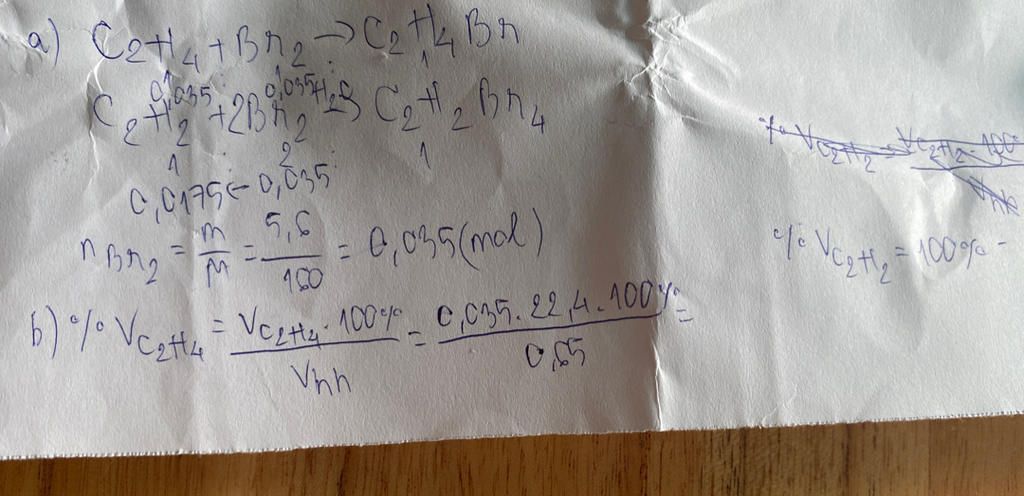 a) C2H4 + Br2 → C2H4Br
1 1 1
0,035 0,035
C2H2 + 2Br2 → C2H2Br4
1 : 2 : 1
0,0175 ← 0,035
nBr2 = m/M = 5,6/160 = 0,035 (mol)
b) % VC2H4 = VC2H4 . 100%/Vhh = 0,035 . 22,4 . 100%/0,65 =
% VC2H2 = VC2H2 . 100%/Vhh
% VC2H2 = 100% -